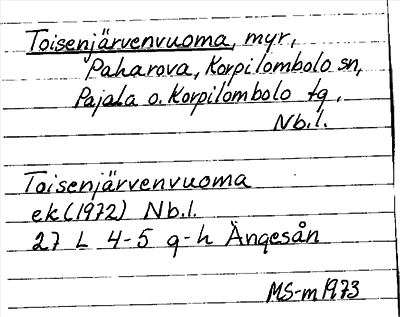 Toisenjärvenvuoma, myr,
Paharova, Korpilombolo sn,
Pajala o. Korpilombolo tg,
Nb.l.
Toisenjärvenvuoma
ek (1972) Nb.l.
27 L 4-5 g-h Ängesån
MS-m 1973